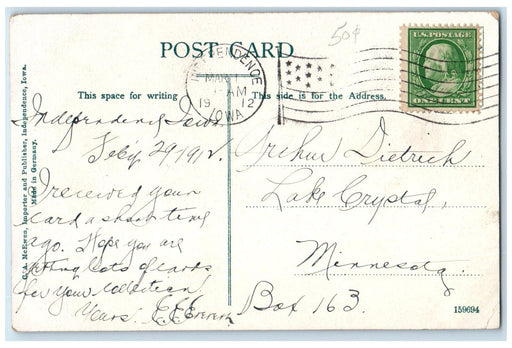 50¢
POST CARD
U.S. POSTAGE
ONE CENT
INDEPENDENCE
MAR
AM
19 12
IOWA
This space for writing
This side is for the Address.
Independence Iowa
Feby 29 1912.
I received your
card a short time
ago. Hope you are
getting lots of cards
for your collection
Yours.
Arthur Dietrich
Lake Crystal,
Minnesota,
Box 163.
C. A. McEwen, Importer and Publisher, Independence, Iowa.
Made in Germany.
159694